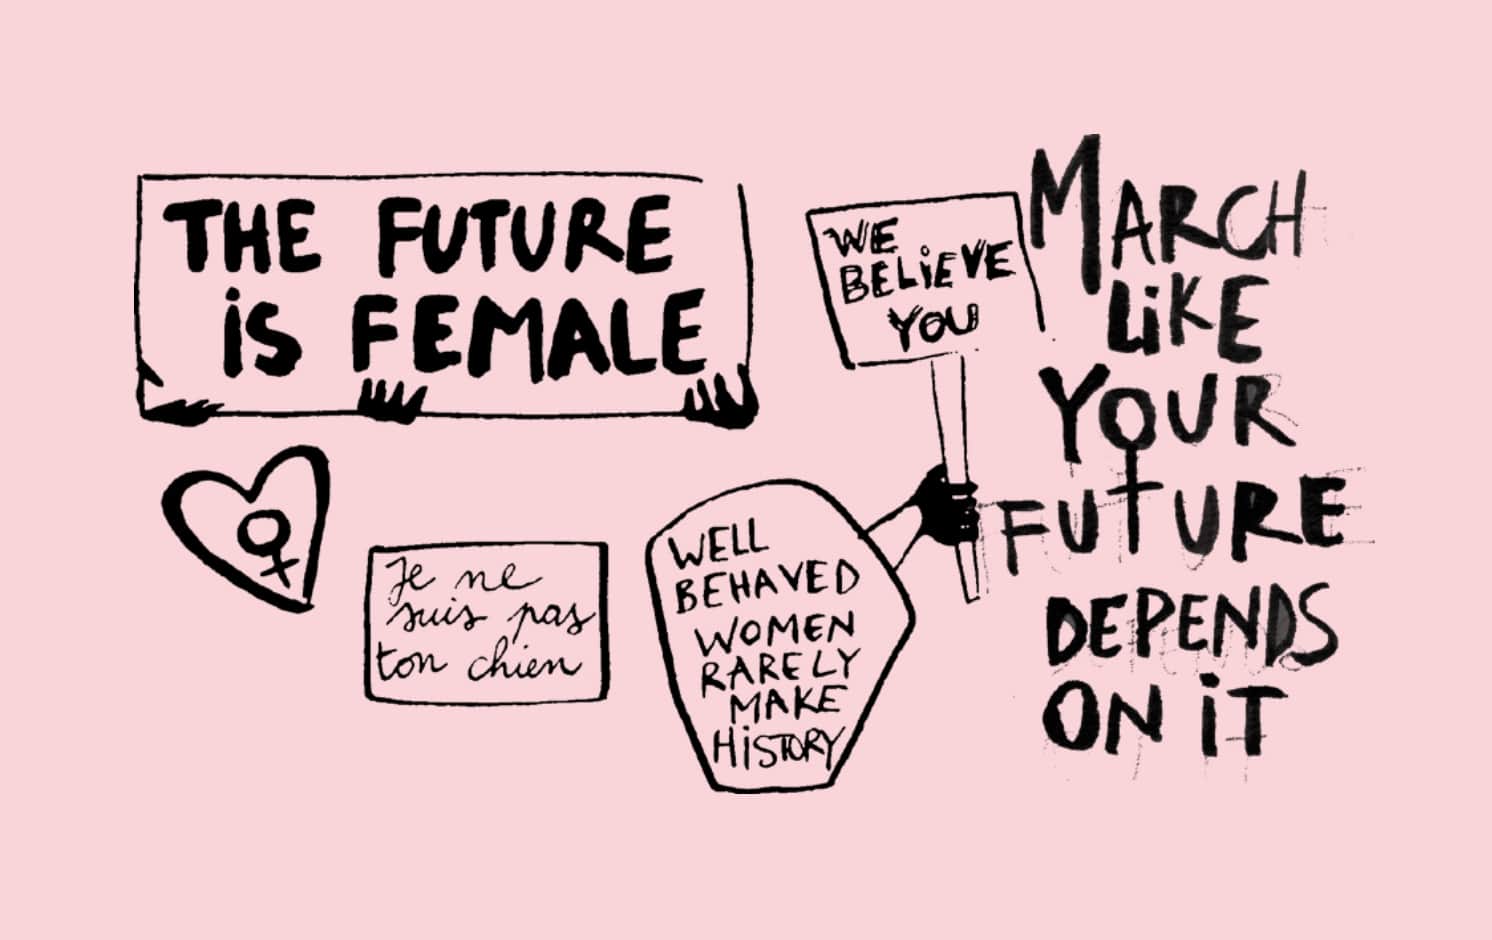 THE FUTURE
iS FEMALE
WE
BELiEVE
YOU
MARCH
LiKE
YOUR
FUTURE
DEPENDS
ON iT
Je ne
suis pas
ton chien
WELL
BEHAVED
WOMEN
RARELY
MAKE
HiSTORY